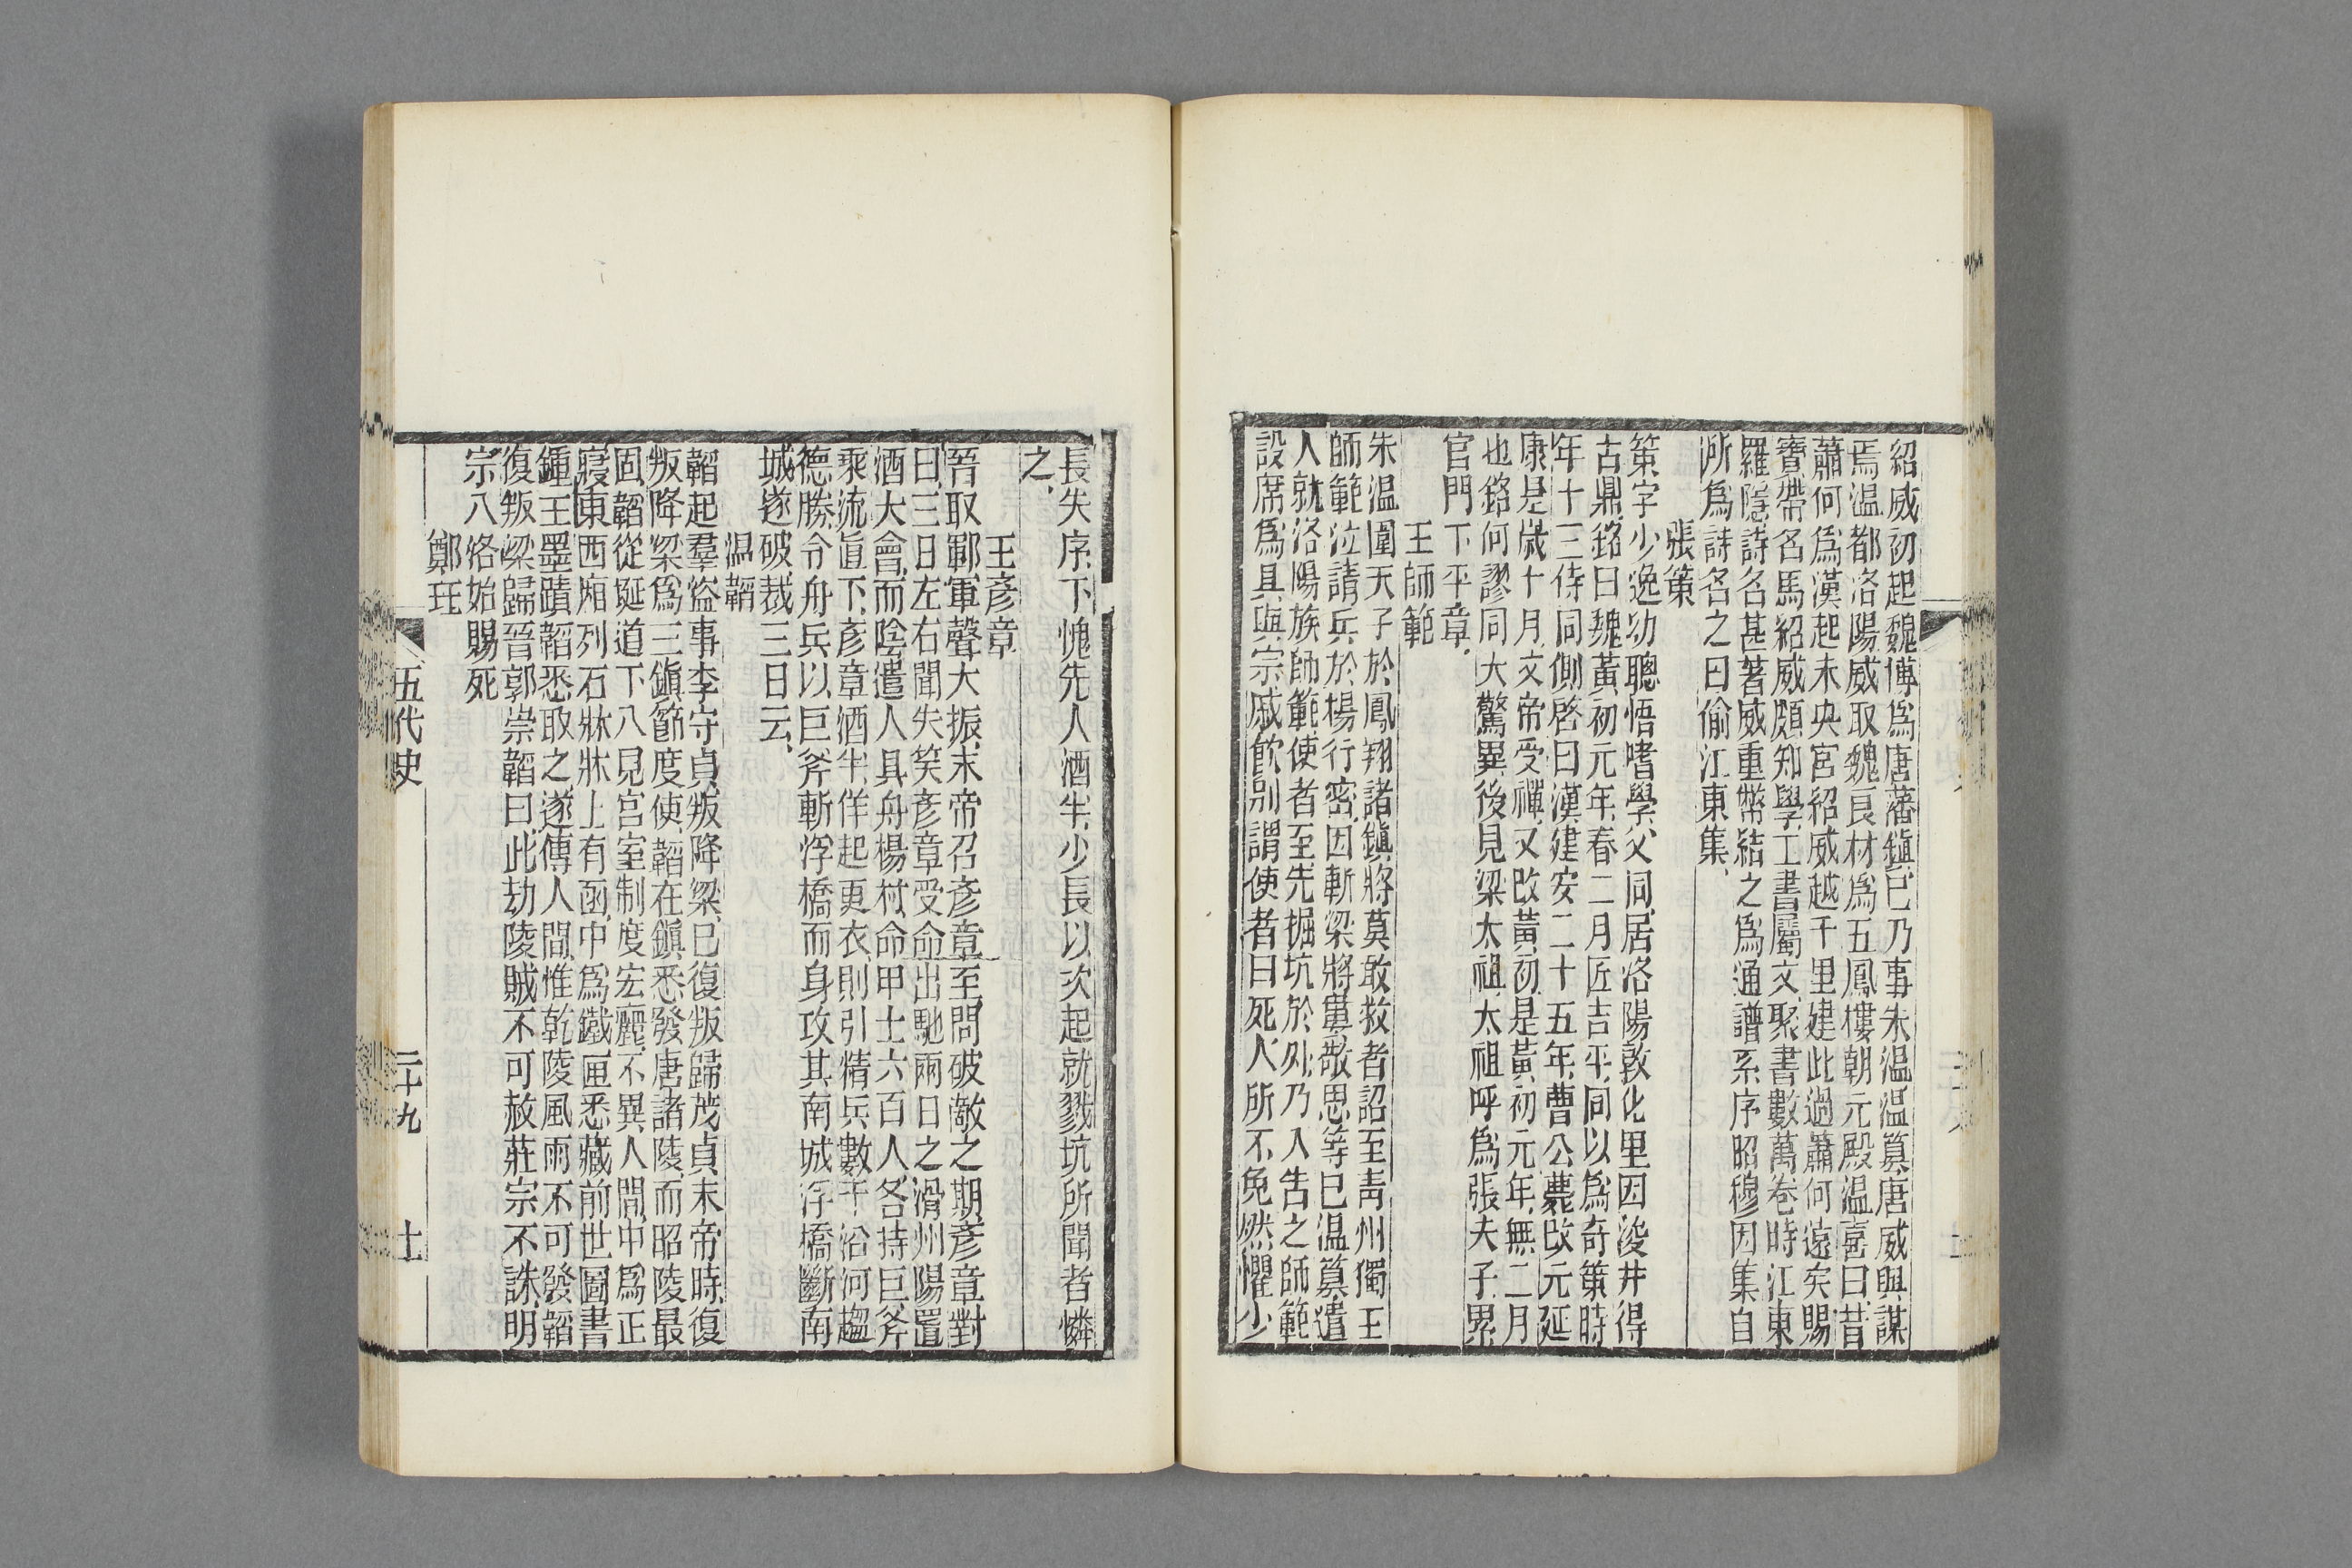 紹威初起魏博爲唐藩鎮已乃事朱温温篡唐威與謀
焉温都洛陽威取魏良材爲五鳳樓朝元殿温喜曰昔
蕭何爲漢起未央宮紹威越千里建此過蕭何遠矣賜
寶帶名馬紹威頗知學工書屬文聚書數萬卷時江東
羅隱詩名甚著威重幣結之爲通譜系序昭穆因集自
所爲詩名之曰偷江東集、
張策
策字少逸幼聰悟嗜學父同居洛陽敦化里因浚井得
古鼎銘曰魏黃初元年春二月匠吉平同以爲奇策時
年十三侍同側啓曰漢建安二十五年曹公薨改元延
康是歲十月文帝受禪又改黃初是黃初元年無二月
也銘何謬同大驚異後見梁太祖太祖呼爲張夫子累
官門下平章、
王師範
朱温圍天子於鳳翔諸鎮將莫敢救者詔至青州獨王
師範泣請兵於楊行密因斬梁將婁敬思等已温篡遣
人就洛陽族師範使者至先掘坑於外乃入告之師範
設席爲具與宗戚飮别謂使者曰死人所不免然懼少
長失序下愧先人酒半少長以次起就戮坑所聞者憐
之、
王彦章
晉取鄆軍聲大振末帝召彦章至問破敵之期彦章對
曰三日左右聞失笑彦章受命出馳兩日之滑州陽置
酒大會而陰遣人具舟楊村命甲士六百人各持巨斧
乘流直下彦章酒半佯起更衣則引精兵數千沿河趨
德勝令舟兵以巨斧斬浮橋而身攻其南城浮橋斷南
城遂破裁三日云、
温韜
韜起羣盜事李守貞叛降梁已復叛歸茂貞末帝時復
叛降梁爲三鎮節度使韜在鎮悉發唐諸陵而昭陵最
固韜從埏道下八見宮室制度宏麗不異人間中爲正
寢東西廂列石牀牀上有函中爲鐵匣悉藏前世圖書
鍾王墨蹟韜悉取之遂傳人間惟乾陵風雨不可發韜
復叛梁歸晉郭崇韜曰此劫陵賊不可赦莊宗不誅明
宗八洛始賜死
鄭珏
五代史 二十九 十一